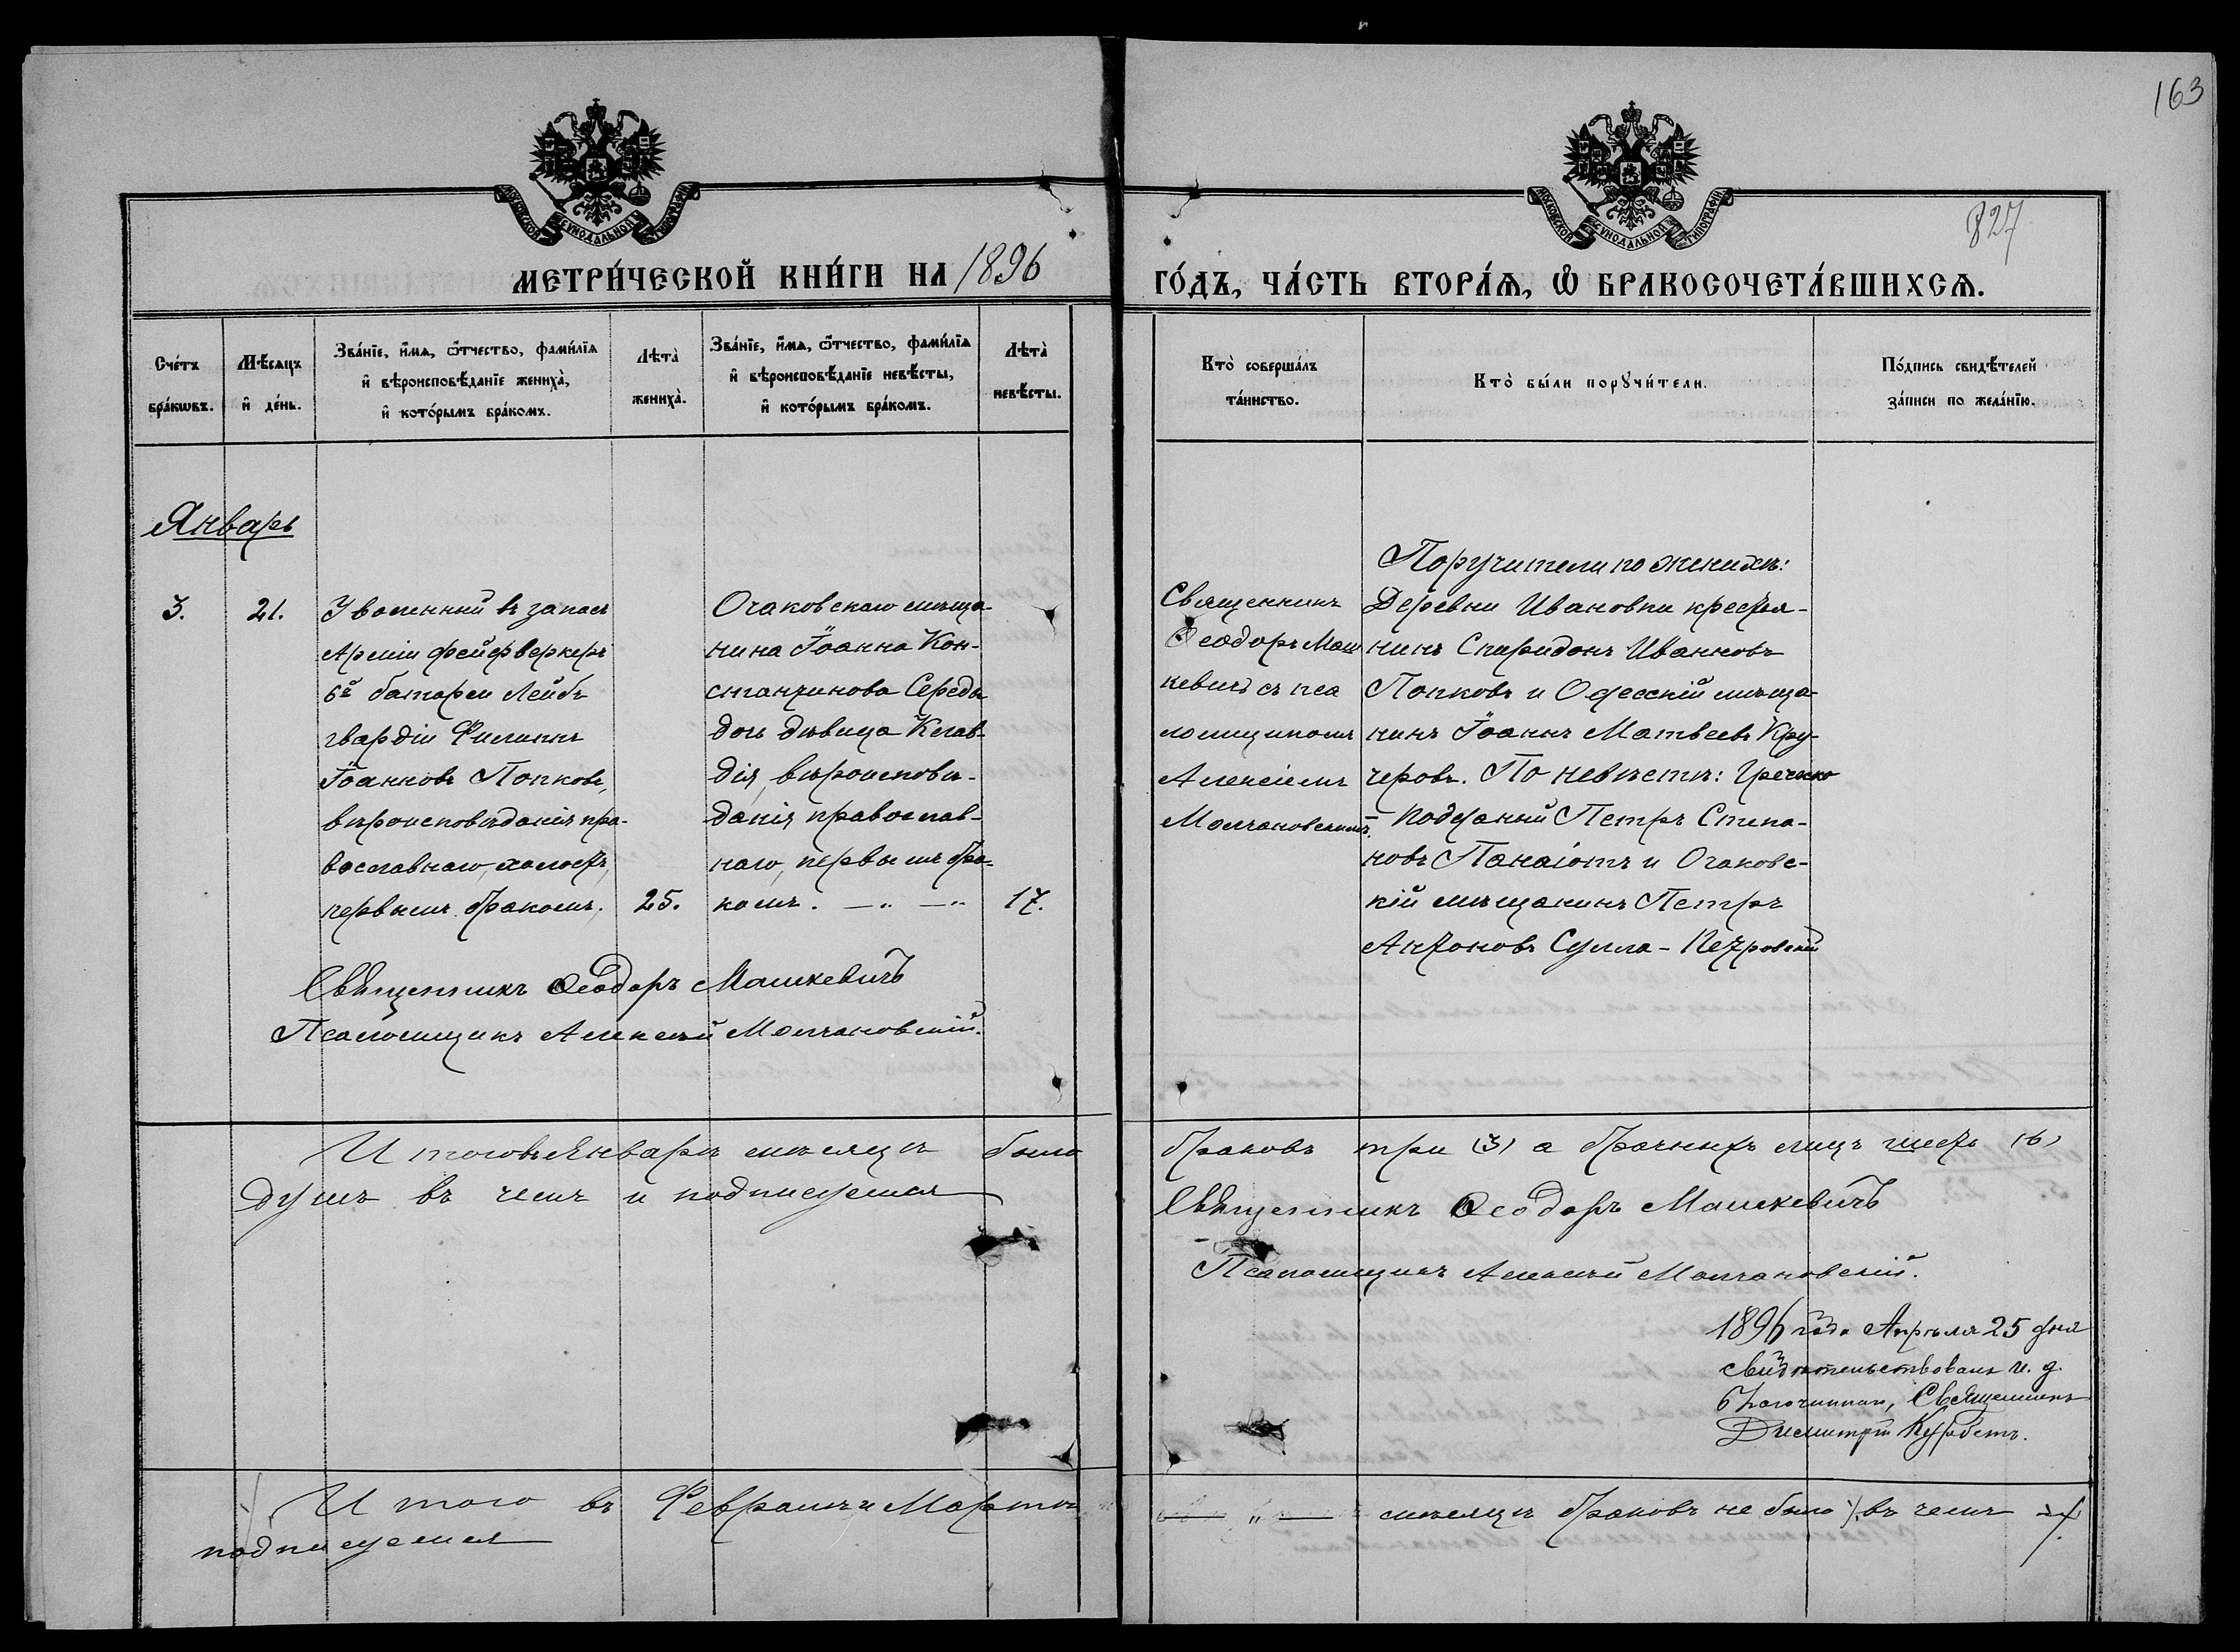 163
827
МОСКОВСКОЙ СѴНОДАЛЬНОЙ ТИПОГРАФІИ
МОСКОВСКОЙ СѴНОДАЛЬНОЙ ТИПОГРАФІИ
МЕТРИ́ЧЕСКОЙ КНИ́ГИ НА 1896
ГО́ДЪ, ЧА́СТЬ ВТОРА́Ѧ, Ѡ҆ БРАКОСОЧЕТА́ВШИХСѦ.
Сче́тъ
бра́кѡвъ.
Мѣ́сѧцъ
и҆ де́нь.
Зва́нїе, и҆́мѧ, ѻ҆́тчество, фами́лїѧ
и҆ вѣроисповѣ́данїе жениха̀,
и҆ кото́рымъ бра́комъ.
Лѣта̀
жениха̀.
Зва́нїе, и҆́мѧ, ѻ҆́тчество, фами́лїѧ
и҆ вѣроисповѣ́данїе невѣ́сты,
и҆ кото́рымъ бра́комъ.
Лѣта̀
невѣ́сты.
Кто̀ соверша́лъ
та́инство.
Кто̀ бы́ли порꙋчи́тели.
По́дпись свидѣ́телей
за́писи по жела́нїю.
Январь
3.
21.
Уволенный въ запасъ
Арміи фейерверкеръ
6й батареи Лейбъ
гвардіи Филиппъ
Іоанновъ Попковъ,
вѣроисповѣданія пра-
вославнаго, холостъ,
первымъ бракомъ.
25.
Очаковскаго мѣща-
нина Іоанна Кон-
стантинова Середы
дочь дѣвица Клав-
дія, вѣроисповѣ-
данія православ-
наго, первымъ бра-
комъ. —„ —„
17.
Священникъ
Ѳеодоръ Маш
кевичъ съ пса
ломщикомъ
Алексіемъ
Молчановскимъ.
Поручители по женихѣ:
Деревни Ивановки крестья-
нинъ Спиридонъ Іванновъ
Попковъ и Одесскій мѣща-
нинъ Іоаннъ Матвеевъ Кру-
черовъ. По невѣстѣ: Греческо
-подданый Петръ Степа-
новъ Панаіотъ и Очаковс-
кій мѣщанинъ Петръ
Антоновъ Сулла-Петровскій
Священникъ Ѳеодоръ Машкевичъ
Псаломщикъ Алексѣй Молчановскій.
И того въ Январѣ мѣсяцѣ было браковъ три (3) а брачныхъ лицъ шесть (6)
душъ въ чемъ и подписуемся
Священникъ Ѳеодоръ Машкевичъ
Псаломщикъ Алексѣй Молчановскій.
1896 года Апрѣля 25 дня
свидѣтельствовалъ и. д.
благочиннаго, Священникъ
Димитрій Курбетъ.
И того въ Февралѣ и Мартѣ — „ — мѣсяцѣ браковъ не было въ чемъ
подписуемся